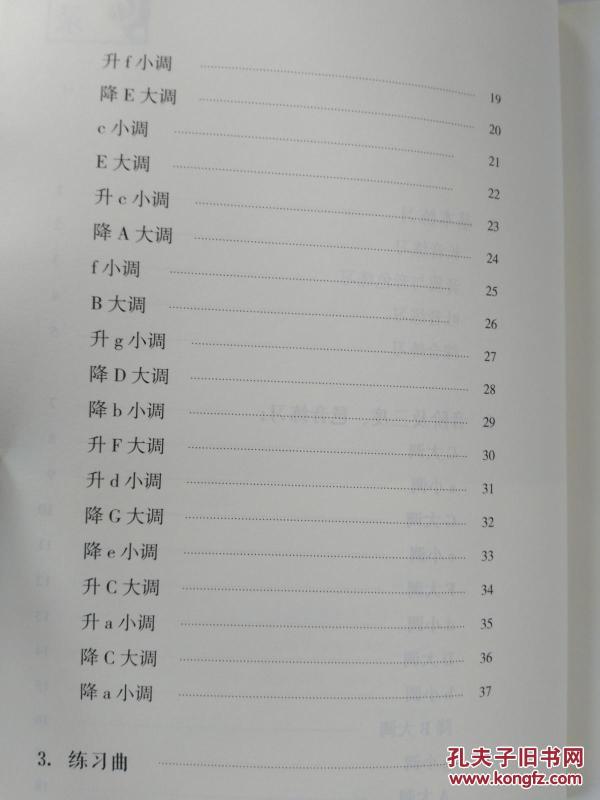 升f小调 19
降E大调 20
c小调 21
E大调 22
升c小调 23
降A大调 24
f小调 25
B大调 26
升g小调 27
降D大调 28
降b小调 29
升F大调 30
升d小调 31
降G大调 32
降e小调 33
升C大调 34
升a小调 35
降C大调 36
降a小调 37
3. 练习曲
孔夫子旧书网
www.kongfz.com